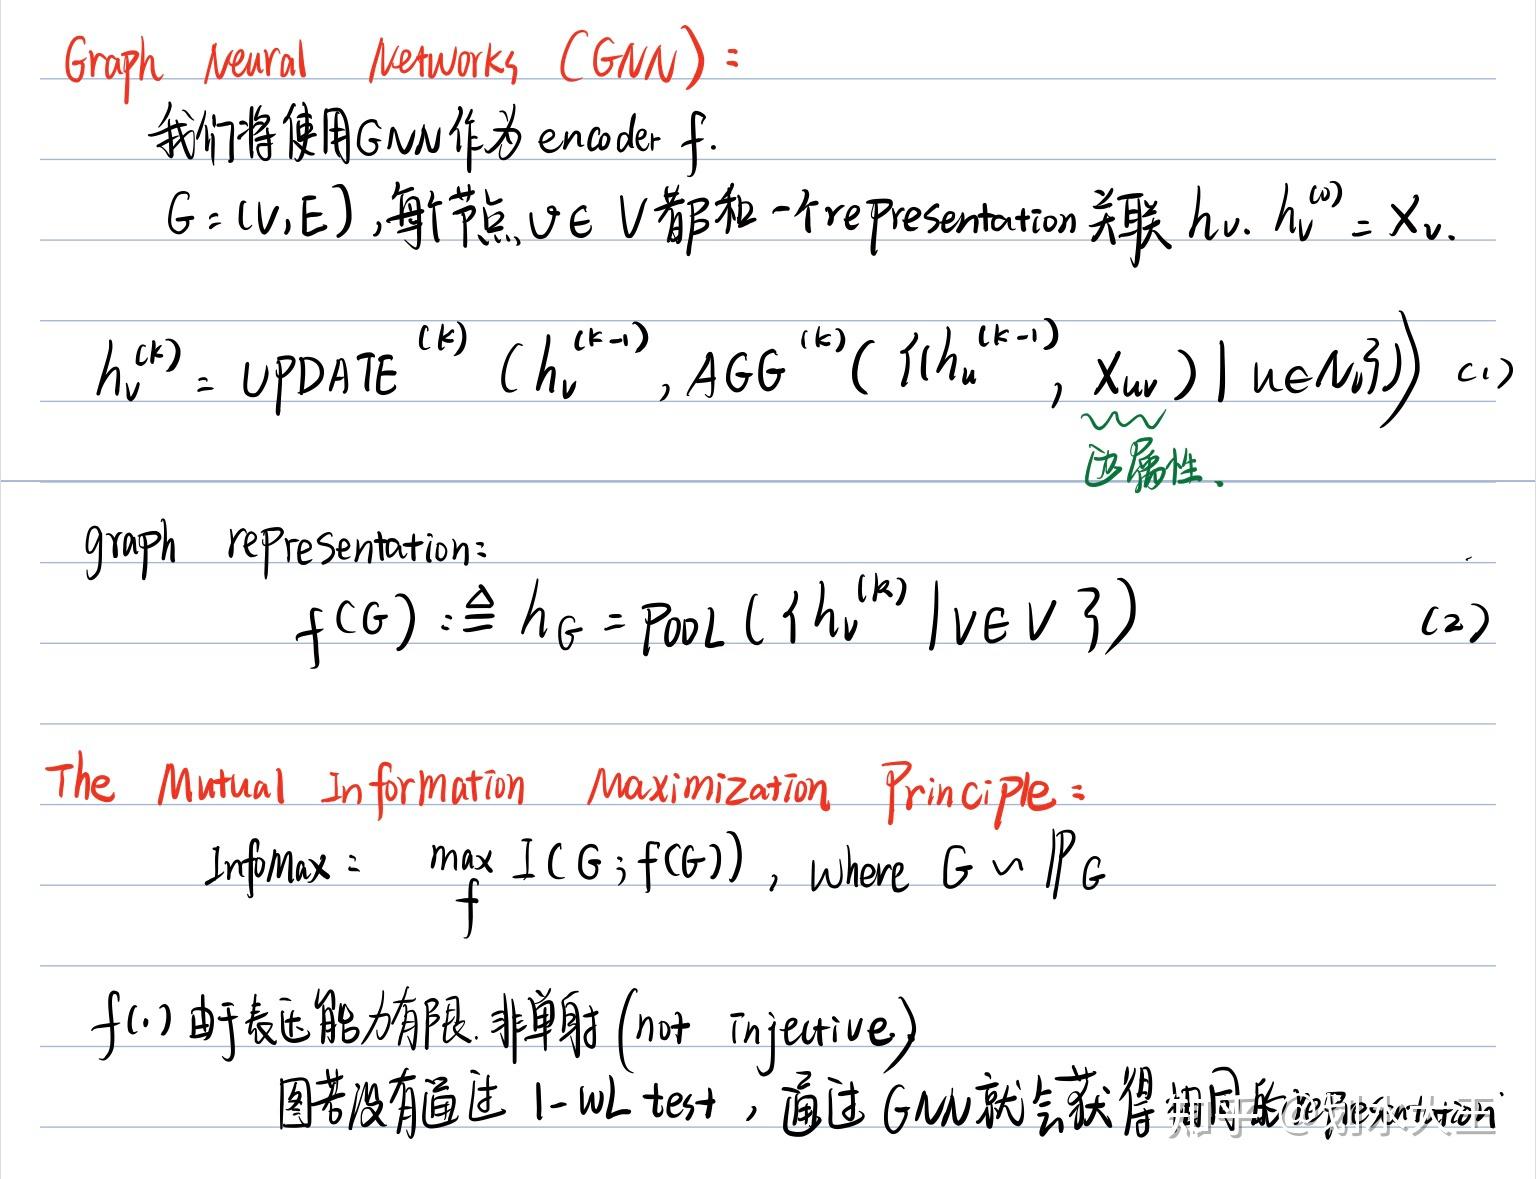 Graph Neural Networks (GNN):
我们将使用GNN作为 encoder f.
G=(V,E),每个节点 v∈V都和一个representation关联 hv. hv^(0) = Xv.
hv^(k) = UPDATE^(k) (hv^(k-1), AGG^(k)({(hu^(k-1), Xuv)|u∈Nv})) (1)
边属性.
graph representation:
f(G) :≜ hG = POOL({hv^(k)|v∈V}) (2)
The Mutual Information Maximization Principle:
InfoMax: max_f I(G;f(G)), where G ~ ℙG
f(.)由于表达能力有限.非单射(not injective)
图若没有通过 1-WL test,通过GNN就会获得相同的representation.
知乎 @划水大王